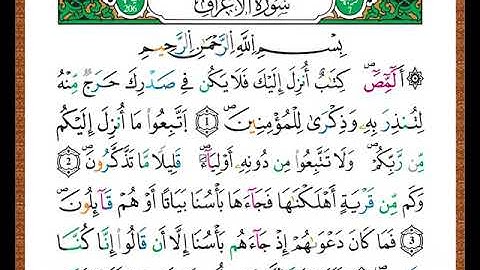 سُورَةُ الْأَعْرَافِ
206
7
بِسْمِ اللَّهِ الرَّحْمَنِ الرَّحِيمِ
الٓمٓصٓ ۝ كِتَابٌ أُنزِلَ إِلَيْكَ فَلَا يَكُن فِي صَدْرِكَ حَرَجٌ مِّنْهُ
لِتُنذِرَ بِهِ وَذِكْرَىٰ لِلْمُؤْمِنِينَ 1 اتَّبِعُوا مَا أُنزِلَ إِلَيْكُم
مِّن رَّبِّكُمْ وَلَا تَتَّبِعُوا مِن دُونِهِ أَوْلِيَاءَ قَلِيلًا مَّا تَذَكَّرُونَ 2
وَكَم مِّن قَرْيَةٍ أَهْلَكْنَاهَا فَجَاءَهَا بَأْسُنَا بَيَاتًا أَوْ هُمْ قَائِلُونَ
3 فَمَا كَانَ دَعْوَاهُمْ إِذْ جَاءَهُم بَأْسُنَا إِلَّا أَن قَالُوا إِنَّا كُنَّا